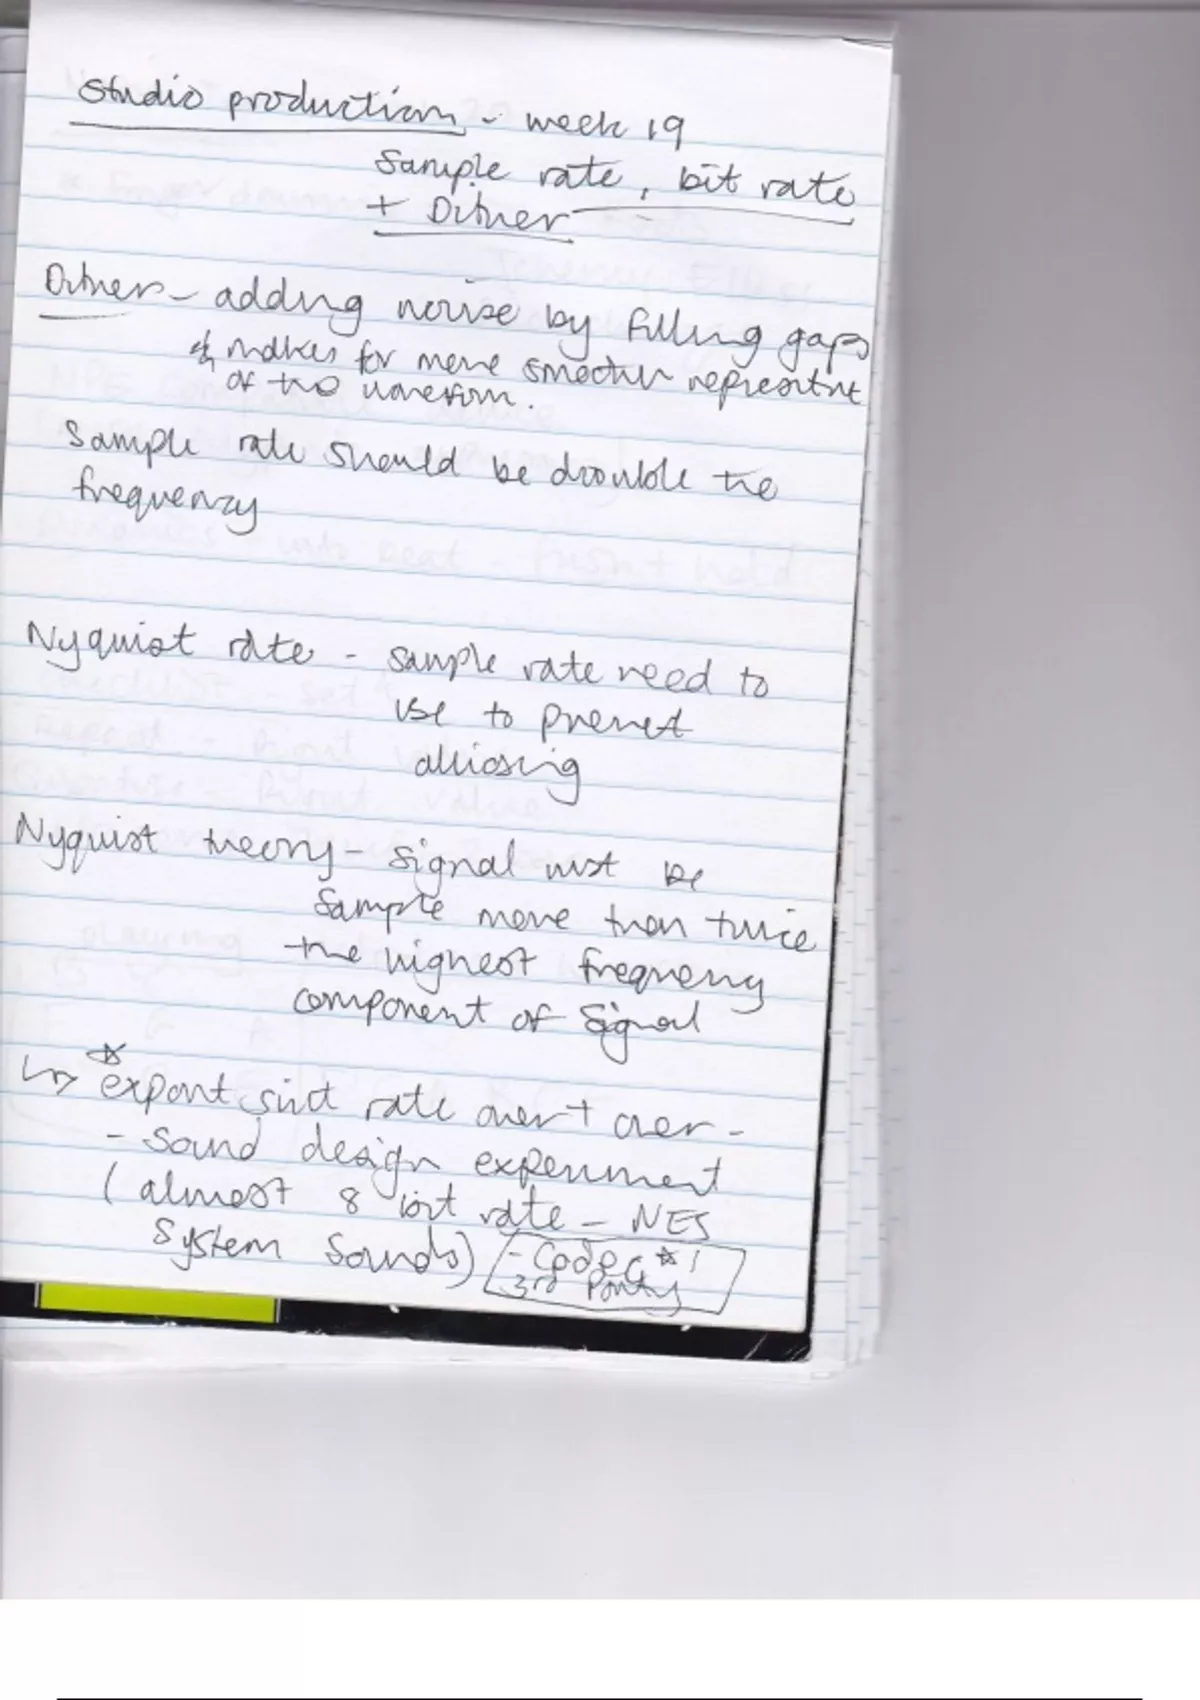 Studio production - week 19
Sample rate, bit rate
+ Dither
Dither - adding noise by filling gaps
& makes for more smoother
of the waveform.
Sample rate should be doouble the
frequency
Nyquist rate - sample rate need to
use to prevent
aliasing
Nyquist theory - signal must be
Sample more than twice
the highest frequency
component of signal
↳ * export rate over + over -
- Sound design experiment
(almost 8 bit rate - NES
System Sounds) - Codec * !
3rd Party